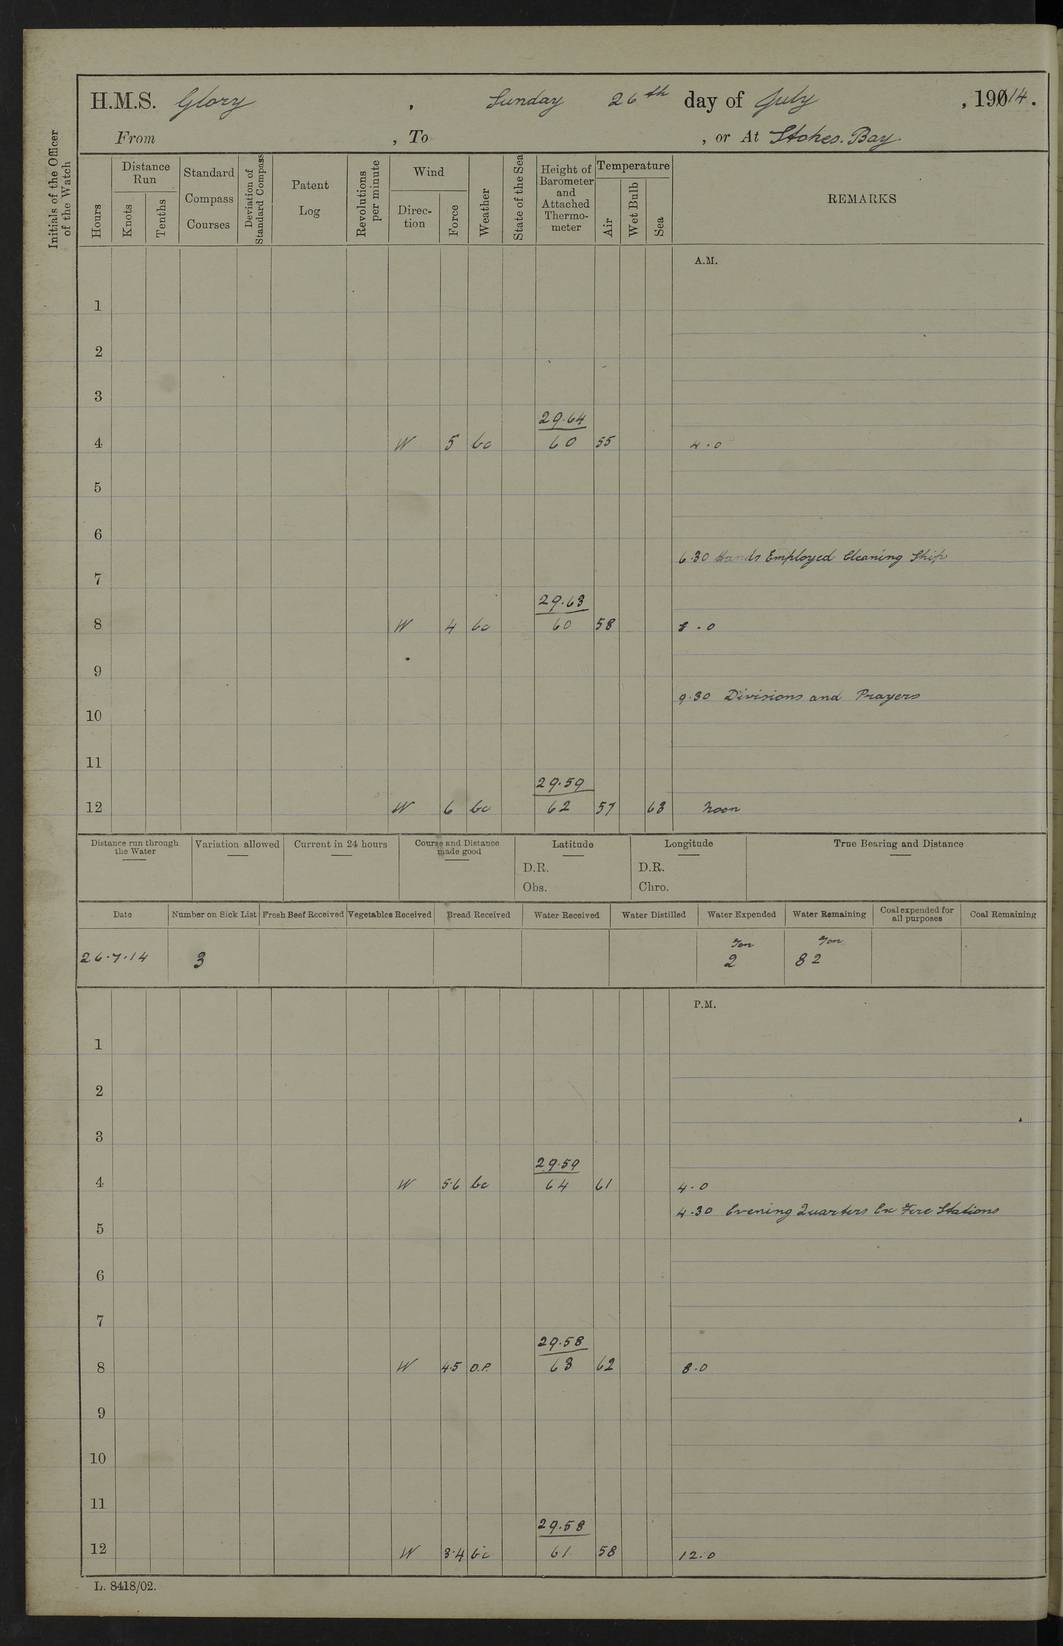 H.M.S. Glory , Sunday 26th day of July , 19014.
From , To , or At Stokes. Bay
Initials of the Officer of the Watch
Hours
Distance Run
Knots
Tenths
Standard Compass Courses
Deviation of Standard Compass
Patent Log
Revolutions per minute
Wind
Direc-tion
Force
Weather
State of the Sea
Height of Barometer and Attached Thermo-meter
Temperature
Air
Wet Bulb
Sea
REMARKS
A.M.
1
2
3
29.64
4 W 5 bc 60 55 4.0
5
6
6.30 Hands Employed Cleaning Ship
7
29.63
8 W 4 bc 60 58 8.0
9
9.30 Divisions and Prayers
10
11
29.59
12 W 6 bc 62 57 63 Noon
Distance run through the Water
Variation allowed
Current in 24 hours
Course and Distance made good
Latitude
D.R.
Obs.
Longitude
D.R.
Chro.
True Bearing and Distance
Date Number on Sick List Fresh Beef Received Vegetables Received Bread Received Water Received Water Distilled Water Expended Water Remaining Coal expended for all purposes Coal Remaining
Ton Ton
26.7.14 3 2 82
P.M.
1
2
3
29.59
4 W 5.6 bc 64 61 4.0
4.30 Evening Quarters Ex Fire Stations
5
6
7
29.58
8 W 4.5 O.P. 63 62 8.0
9
10
11
29.58
12 W 3.4 bc 61 58 12.0
L. 8418/02.